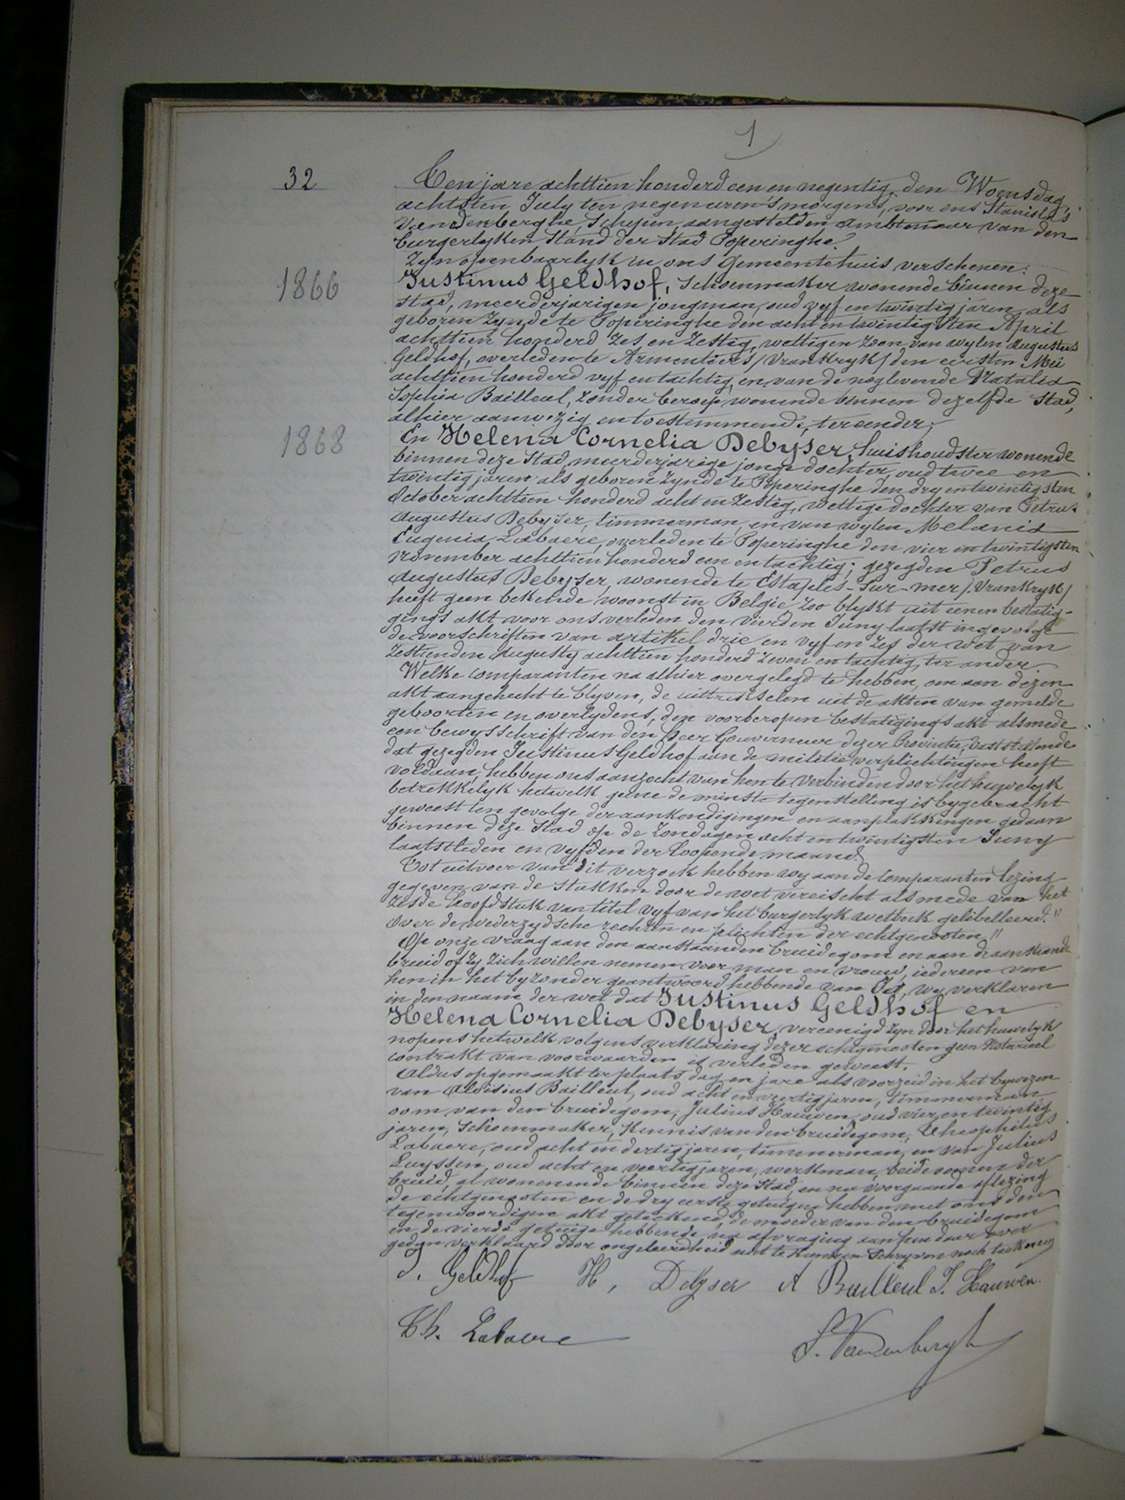 1
32
Ten jare achttien honderd een en negentig, den Woensdag
achtsten July ten negen uren 's morgens, voor ons Stanislas
Vandenberghe, Schepen, aangestelden ambtenaar van den
burgerlyken stand der Stad Poperinghe.
Zyn openbaarlyk in ons Gemeentehuis verschenen:
1866
Justinus Geldhof, Schoenmaker wonende binnen deze
stad, meerderjarigen jongman, oud vyf en twintig jaren als
geboren zynde te Poperinghe den acht en twintigsten April
achttien honderd zes en zestig, wettigen zoon van wylen Augustus
Geldhof, overleden te Armentiers /Vrankryk/ den eersten Mei
achttien honderd vyf en tachtig, en van de noglevende Natalia
Sophia Bailleul, zonder beroep wonende binnen dezelfde stad,
alhier aanwezig en toestemmende, ter eender;
1868
En Helena Cornelia Debyser, huishoudster wonende
binnen deze Stad, meerderjarige jonge dochter, oud twee en
twintig jaren als geboren zynde te Poperinghe den dry en twintigsten
October achttien honderd acht en zestig, wettige dochter van Petrus
Augustus Debyser, timmerman, en van wylen Melania
Eugenia Labaere, overleden te Poperinghe den vier en twintigsten
november achttien honderd een en tachtig; gezegden Petrus
Augustus Debyser, wonende te Etaples-sur-mer /Vrankryk/
heeft geen bekende woonst in België, zoo blykt uit eenen bestatig-
gings akt voor ons verleden den vierden Juny laatst ingevolge
de voorschriften van artikel drie en vyf en zes der wet van
zestienden Augusty achttien honderd zeven en tachtig, ter ander
Welke comparanten na alhier overgelegd te hebben, om aan dezen
akt aangehecht te blyven, de uittreksels uit de akten van gemelde
geboorten en overlydens, den voorberoepen bestatigings akt alsmede
een bewysschrift van den Heer Gouverneur dezer Provincie, vaststellende
dat gezegden Justinus Geldhof aan de militie verplichtingen heeft
voldaan, hebben ons aanzocht van hen te verbinden door het huwelyk
betrekkelyk hetwelk geene de minste tegenstelling is bygebracht
geweest ten gevolge der aankondigingen en aanplakkingen gedaan
binnen deze Stad op de Zondagen acht en twintigsten Juny
laatstleden en vyfden der loopende maand.
Tot uitvoer van dit verzoek hebben wy aan de comparanten lezing
gegeven van de stukken door de wet vereischt alsmede van het
zesde hoofdstuk van titel vyf van het burgerlyk wetboek gelibelleerd: "
Over de wederzydsche rechten en plichten der echtgenooten "
Op onze vraag aan den aanstaanden bruidegom en aan de aanstaande
bruid of zy zich willen nemen voor man en vrouw, iedereen van
hen in het byzonder geantwoord hebbende van Ja, wy verklaren
in den naam der wet dat Justinus Geldhof en
Helena Cornelia Debyser, vereenigd zyn door het huwelyk
nopens hetwelk volgens verklaring dezer echtgenooten geen Notarieel
contrakt van voorwaarden is verleden geweest.
Aldus opgemaakt ter plaats dag en jare als voorzeid in het bywezen
van Aloisius Bailleul, oud acht en veertig jaren, timmerman
oom van den bruidegom, Julius Hauwen, oud vier en twintig
jaren, Schoenmaker, kennis van den bruidegom, Theophilus
Labaere, oud acht en dertig jaren, timmerman, en van Julius
Luyssen, oud acht en veertig jaren, werkman, beide oomen der
bruid, al wonenende binnen deze Stad, en na voorgaande aflezing
de echtgenooten en de dry eerste getuigen hebben met ons den
tegenwoordigen akt geteekend, de moeder van den bruidegom
en de vierde getuige hebbende na afvraging aan hun daar over
gedaan verklaard door ongeleerdheid niet te kunnen schryven noch teekenen
J. Geldhof H, Debyser A Bailleul J. Hauwen.
Th. Labaere S. Vandenberghe